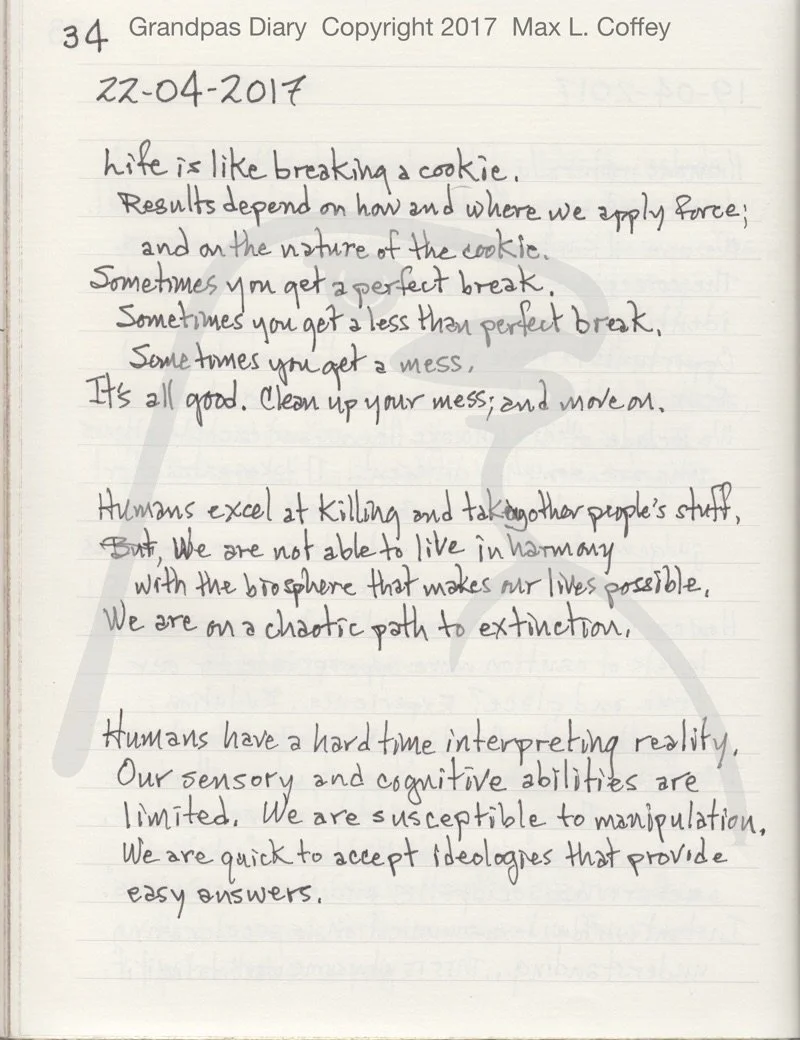 34 Grandpas Diary Copyright 2017 Max L. Coffey
22-04-2017
Life is like breaking a cookie.
Results depend on how and where we apply force;
and on the nature of the cookie.
Sometimes you get a perfect break.
Sometimes you get a less than perfect break.
Sometimes you get a mess.
It's all good. Clean up your mess; and move on.
Humans excel at killing and taking other people's stuff.
But, We are not able to live in harmony
with the biosphere that makes our lives possible.
We are on a chaotic path to extinction.
Humans have a hard time interpreting reality.
Our sensory and cognitive abilities are
limited. We are susceptible to manipulation.
We are quick to accept ideologies that provide
easy answers.